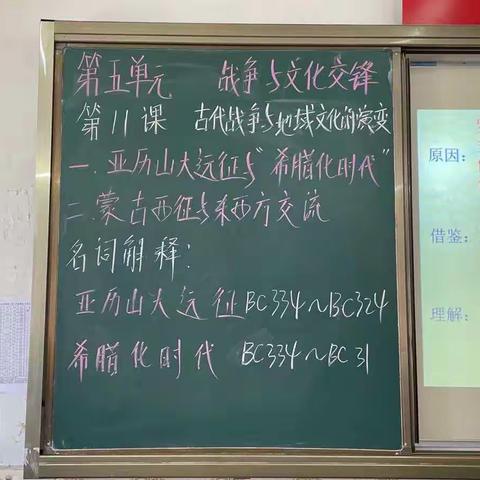 第五单元 战争与文化交锋
第11课 古代战争与地域文化的演变
一.亚历山大远征与"希腊化时代"
二.蒙古西征与东西方交流
名词解释:
亚历山大远征BC334~BC324
希腊化时代 BC334~BC31
原因:
借鉴:
理解: